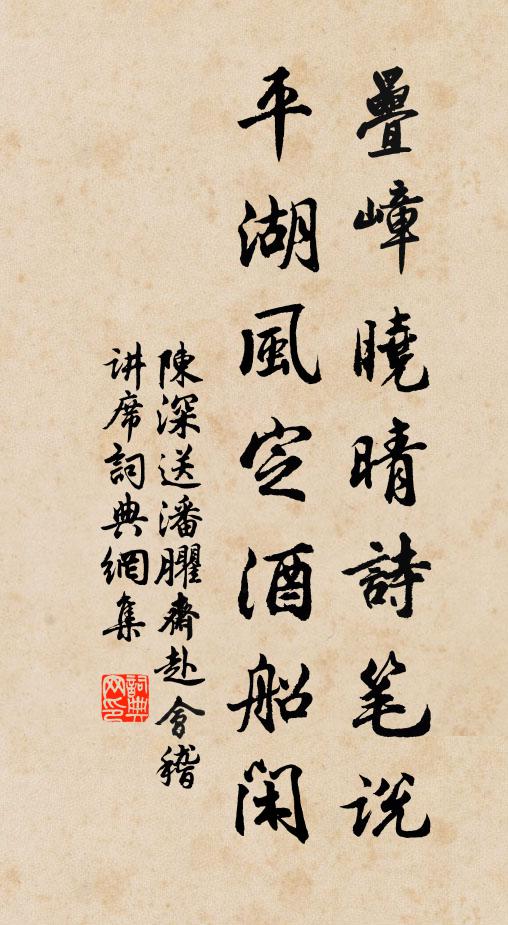 疊嶂曉晴詩笔説
平湖風定酒船閑
陳深送潘臞齋赴會稽
讲席詞典網集
詞典
网印